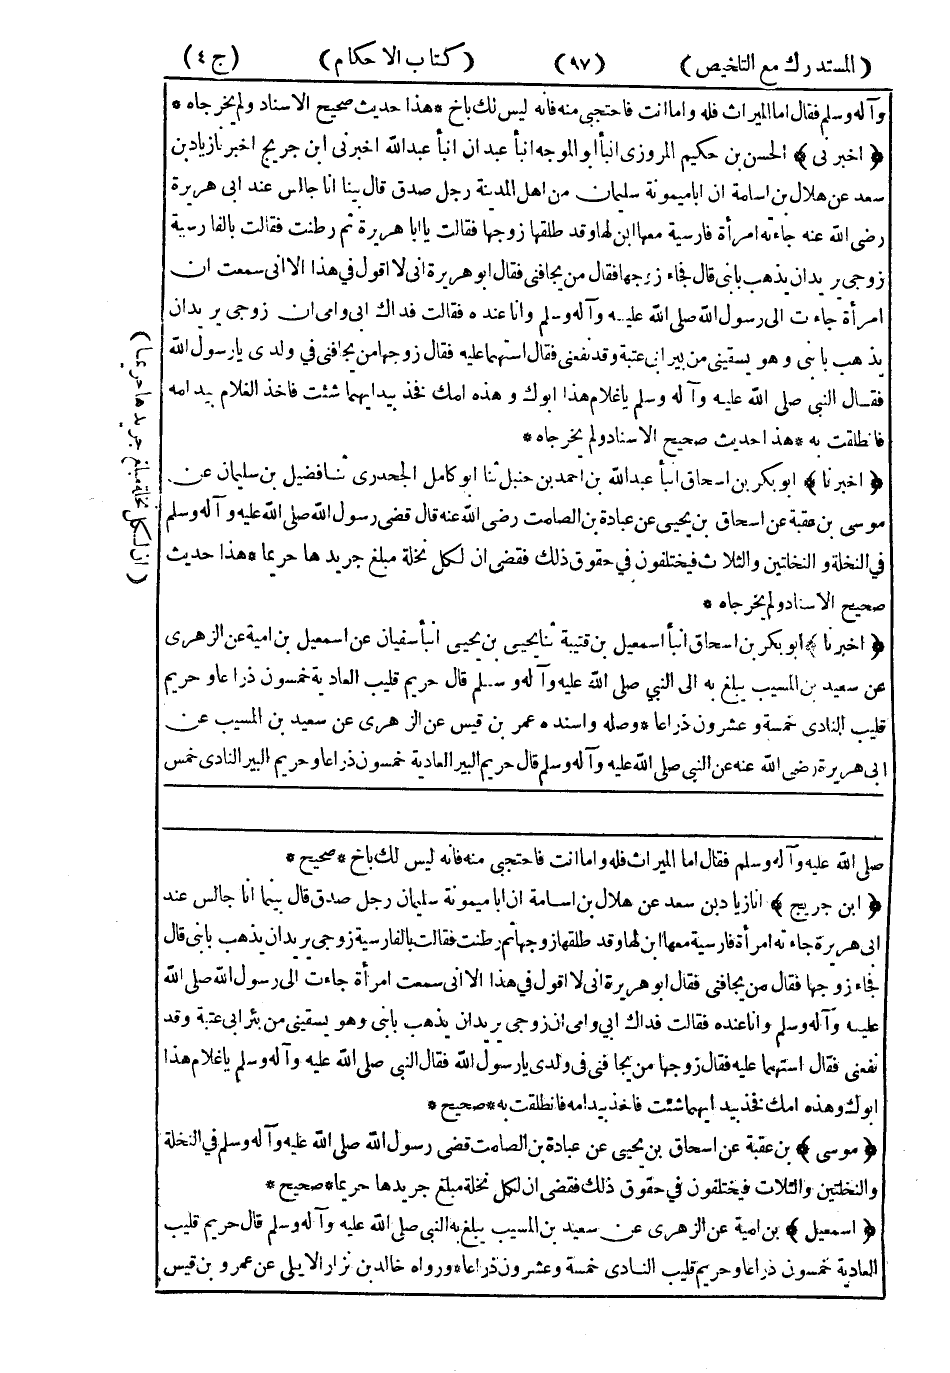 (المستدرك مع التلخيص) (٩٧) (كتاب الاحكام) (ج ٤)
وآله وسلم فقال اما الميراث فله واما انت فاحتجبي منه فانه ليس لك باخ * هذا حديث صحيح الاسناد ولم يخرجاه *
﴿ اخبرنى ﴾ الحسن بن حكيم المروزى انبأ أبو الموجه انبأ عبدان انبأ عبدالله اخبرنى ابن جريج اخبرنا زياد بن
سعد عن هلال بن اسامة ان اباميمونة سليمان من اهل المدينة رجل صدق قال بينا انا جالس عند ابى هريرة
رضى الله عنه جاءته امرأة فارسية معها ابن لها وقد طلقها زوجها فقالت يا ابا هريرة ثم رطنت فقالت بالفارسية
زوجي يريد ان يذهب بابنى قال فجاء زوجها فقال من يحاقنى فقال ابو هريرة انى لا اقول في هذا الا انى سمعت ان
امرأة جاءت الى رسول الله صلى الله عليه وآله وسلم وانا عنده فقالت فداك ابى وامى ان زوجى يريد ان
يذهب بابنى وهو يسقينى من بير ابى عتبة وقد نفعنى فقال استهما عليه فقال زوجها من يحاقنى في ولدى يا رسول الله
فقال النبى صلى الله عليه وآله وسلم يا غلام هذا ابوك وهذه امك فخذ بيد ايهما شئت فاخذ الغلام بيد امه
فانطلقت به * هذا حديث صحيح الاسناد ولم يخرجاه *
﴿ اخبرنا ﴾ ابو بكر بن اسحاق انبأ عبدالله بن احمد بن حنبل ثنا ابو كامل الجحدرى ثنا فضيل بن سليمان عن
موسى بن عقبة عن اسحاق بن يحيى عن عبادة بن الصامت رضى الله عنه قال قضى رسول الله صلى الله عليه وآله وسلم
في النخلة والنخلتين والثلاث فيختلفون في حقوق ذلك فقضى ان لكل نخلة مبلغ جريدها حريما * هذا حديث
صحيح الاسناد ولم يخرجاه *
﴿ اخبرنا ﴾ ابو بكر بن اسحاق انبأ اسمعيل بن قتيبة ثنا يحيى بن يحيى انبأ سفيان عن اسمعيل بن امية عن الزهرى
عن سعيد بن المسيب يبلغ به الى النبي صلى الله عليه وآله وسلم قال حريم قليب العادية خمسون ذراعا وحريم
قليب النادى خمسة وعشرون ذراعا * وصله واسنده عمر بن قيس عن الزهرى عن سعيد بن المسيب عن
ابى هريرة رضى الله عنه عن النبي صلى الله عليه وآله وسلم قال حريم البير العادية خمسون ذراعا وحريم البير النادى خمس
(ان لكل نخلة مبلغ جريدها حريما)
صلى الله عليه وآله وسلم فقال اما الميراث فله واما انت فاحتجبي منه فانه ليس لك باخ * صحيح *
﴿ ابن جريج ﴾ انا زياد بن سعد عن هلال بن اسامة ان ابا ميمونة سليمان رجل صدق قال بينما انا جالس عند
ابى هريرة جاءته امرأة فارسية معها ابن لها وقد طلقها زوجها ثم رطنت فقالت بالفارسية زوجى يريد ان يذهب بابنى قال
فجاء زوجها فقال من يحاقنى فقال ابو هريرة انى لا اقول في هذا الا انى سمعت امرأة جاءت الى رسول الله صلى الله
عليه وآله وسلم وانا عنده فقالت فداك ابى وامى ان زوجى يريد ان يذهب بابنى وهو يسقينى من بئر ابى عتبة وقد
نفعنى فقال استهما عليه فقال زوجها من يحاقنى فى ولدى يا رسول الله فقال النبى صلى الله عليه وآله وسلم يا غلام هذا
ابوك وهذه امك فخذ بيد ايهما شئت فاخذ بيد امه فانطلقت به * صحيح *
﴿ موسى ﴾ بن عقبة عن اسحاق بن يحيى عن عبادة بن الصامت قضى رسول الله صلى الله عليه وآله وسلم في النخلة
والنخلتين والثلاث فيختلفون في حقوق ذلك فقضى ان لكل نخلة مبلغ جريدها حريما * صحيح *
﴿ اسمعيل ﴾ بن امية عن الزهرى عن سعيد بن المسيب يبلغ به النبي صلى الله عليه وآله وسلم قال حريم قليب
العادية خمسون ذراعا وحريم قليب النادى خمسة وعشرون ذراعا * ورواه خالد بن نزار الايلى عن عمرو بن قيس